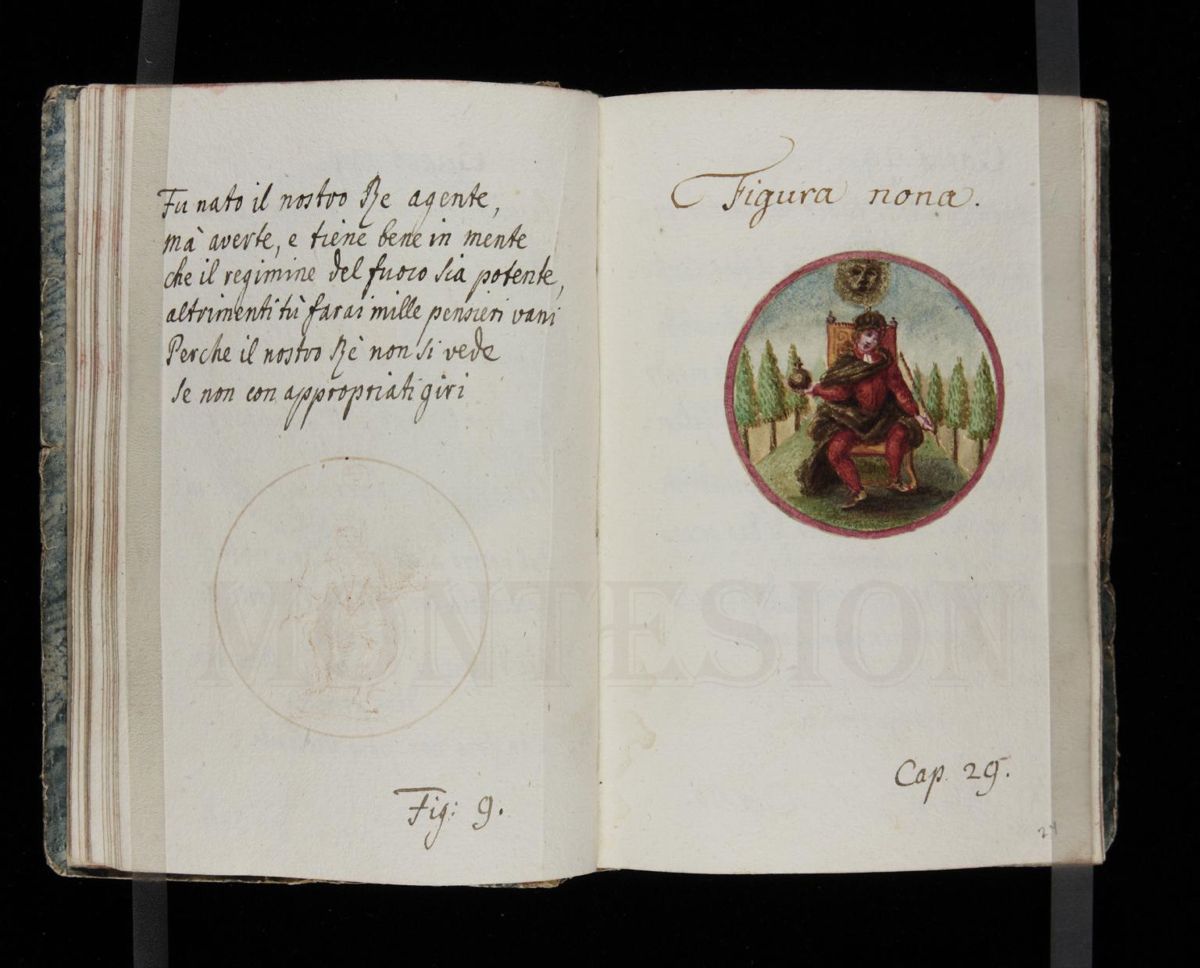 Fu nato il nostro Re agente,
mà averte, e tiene bene in mente
che il regimine del fuoco sia potente,
altrimenti tù farai mille pensieri vani
Perche il nostro Rè non si vede
se non con appropriati giri
Fig: 9.
Figura nona.
Cap. 29.
24
MONTESION